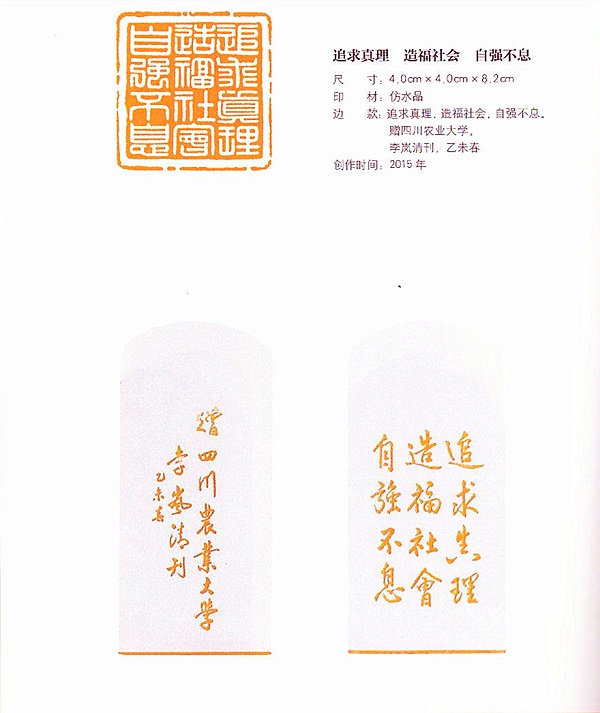 追求真理
造福社會
自强不息
追求真理　造福社会　自强不息
尺　寸：4.0cm×4.0cm×8.2cm
印　材：仿水晶
边　款：追求真理，造福社会，自强不息。
赠四川农业大学，
李岚清刊，乙未春
创作时间：2015年
贈四川農業大学
李嵐清刊
乙未春
追求真理
造福社會
自強不息